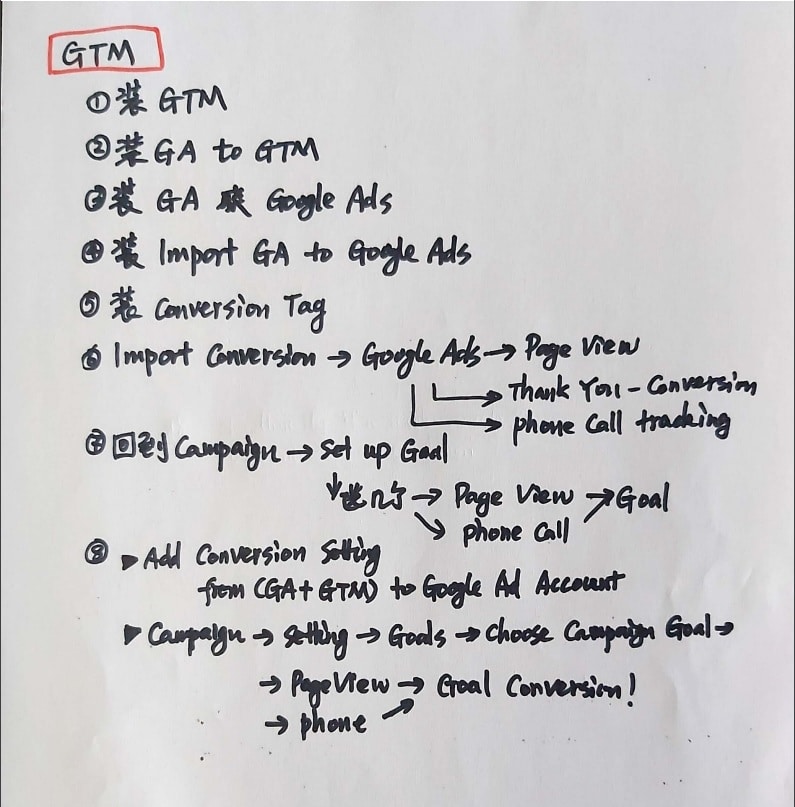 GTM
① 装 GTM
② 装 GA to GTM
③ 装 GA 联 Google Ads
④ 装 Import GA to Google Ads
⑤ 装 Conversion Tag
⑥ Import Conversion → Google Ads → Page View
→ Thank You - Conversion
→ phone Call tracking
⑦ 回到 Campaign → Set up Goal
↓ 选 → Page View → Goal
↘ phone Call
⑧ ▶ Add Conversion Setting
from (GA + GTM) to Google Ad Account
▶ Campaign → Setting → Goals → Choose Campaign Goal →
→ Page View → Goal Conversion!
→ phone